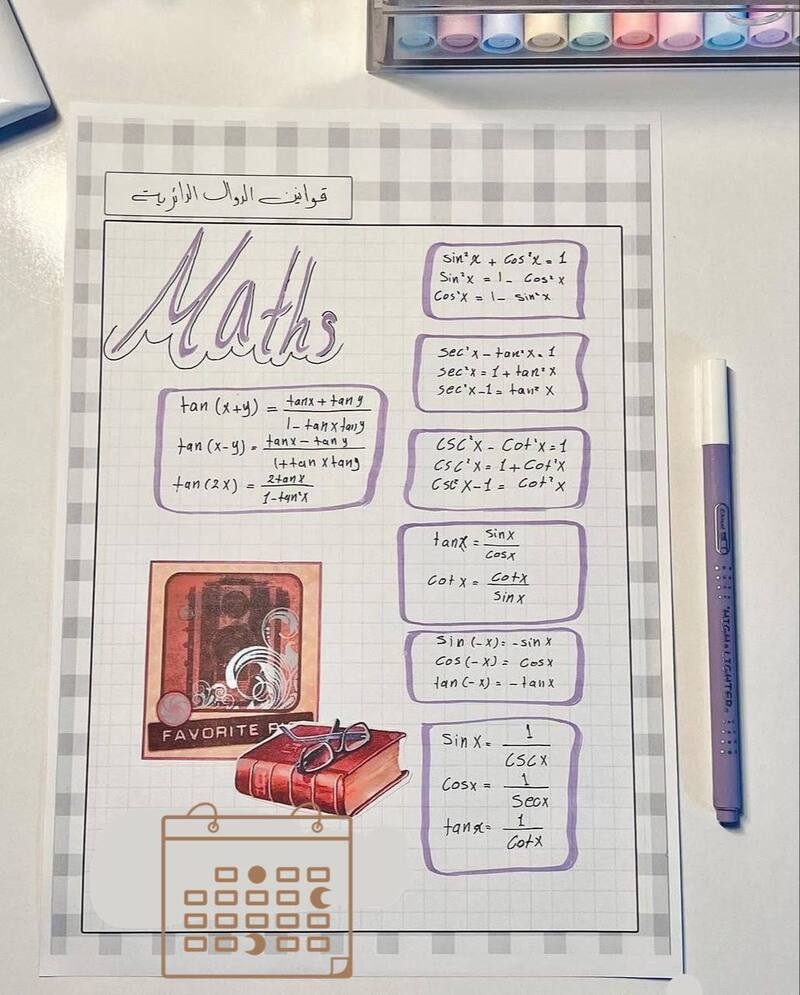 قوانين الدوال الدائرية
Maths
tan (x+y) = tanx + tan y / 1 - tanx tany
tan (x-y) = tanx - tan y / 1 + tan x tany
tan (2x) = 2tanx / 1 - tan²x
FAVORITE
sin²x + cos²x = 1
sin²x = 1 - cos²x
cos²x = 1 - sin²x
sec²x - tan²x = 1
sec²x = 1 + tan²x
sec²x - 1 = tan² x
csc²x - cot²x = 1
csc²x = 1 + cot²x
csc²x - 1 = cot²x
tanx = sinx / cosx
cotx = cotx / sinx
sin(-x) = -sinx
cos(-x) = cosx
tan(-x) = -tanx
sinx = 1 / cscx
cosx = 1 / secx
tanx = 1 / cotx
HIGHLIGHTER